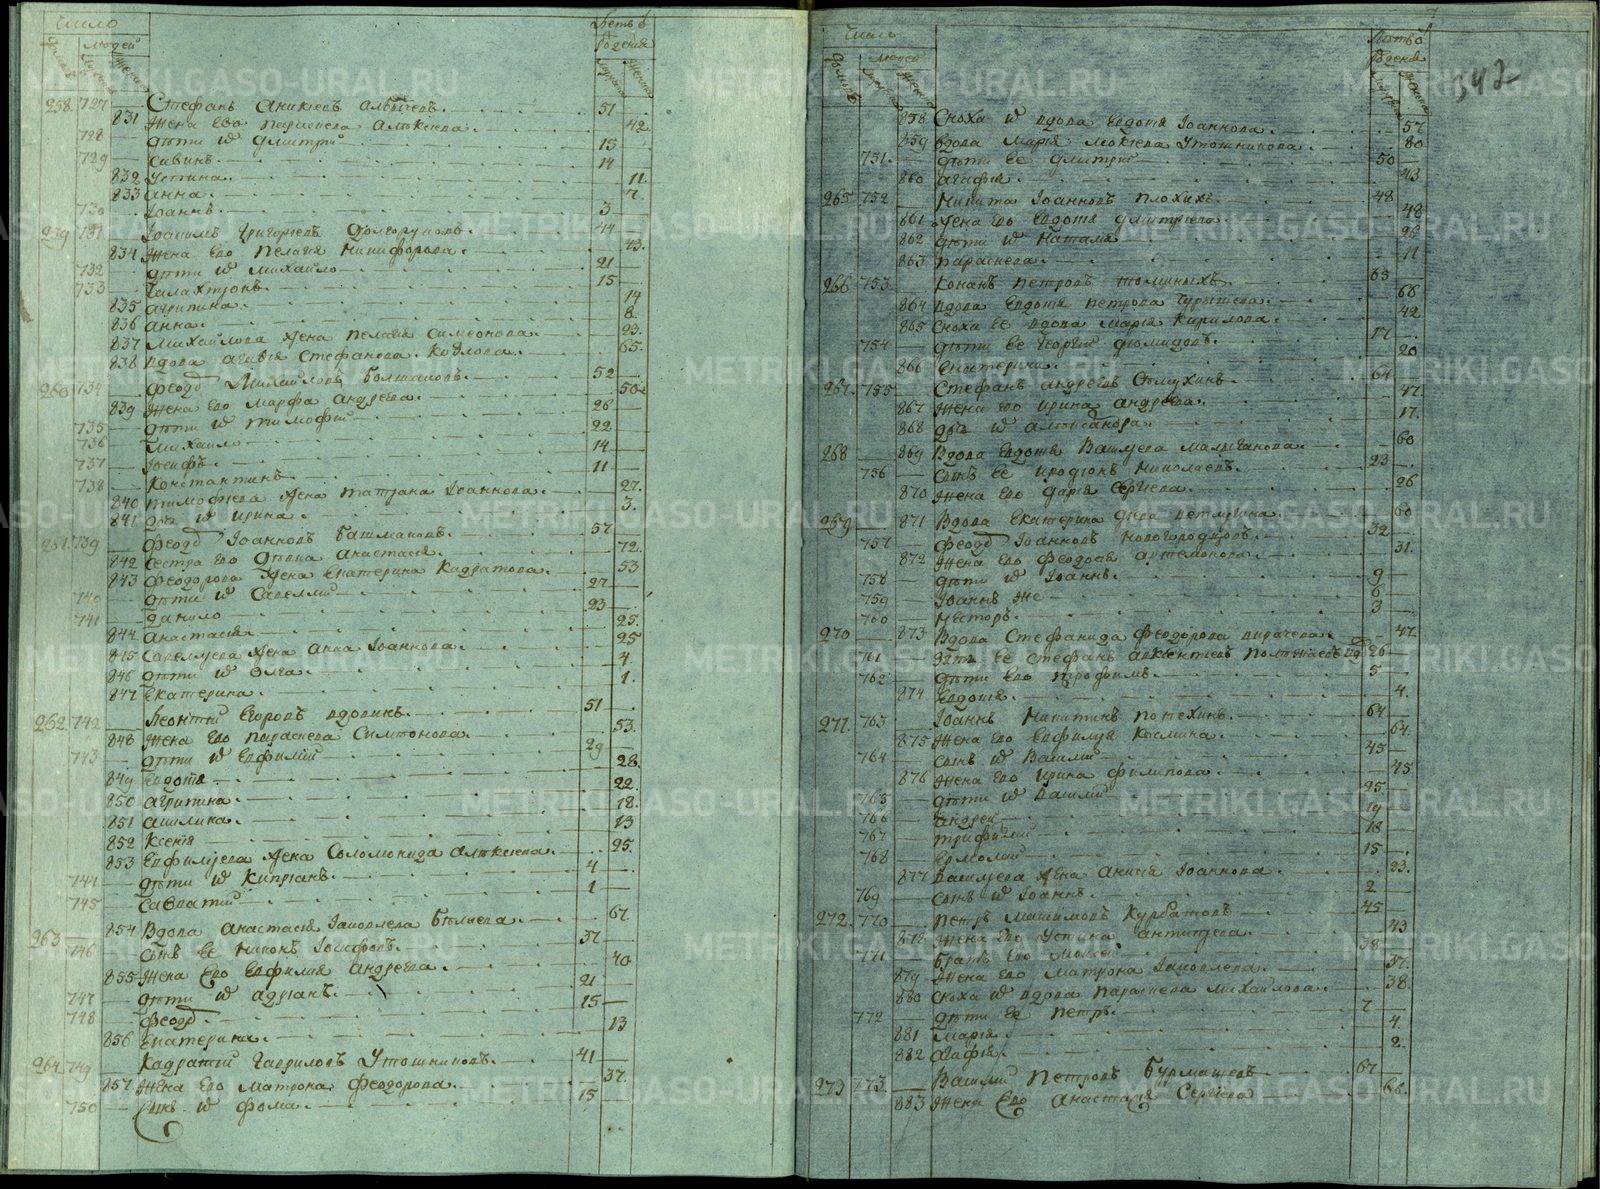 число
людей
Летъ ѿ рожденія
258 727 Стефанъ Аникіевъ 51
831 Жена его Параскева Алѣксіева 42
728 дѣти ихъ Дмитрій 15
729 Савинъ 14
832 Устина 11
833 Анна 7
730 Іоаннъ 3
259 731 Іоакимъ Григорьевъ Долгоруковъ 44
834 Жена его Пелагія Никифорова 43
732 дѣти ихъ Михайло 21
733 Галахтіонъ 15
835 Агрипина 14
836 Анна 8
837 Михайлова жена Пелагія Симеонова 23
838 вдова Агафія Стефанова Козлова 65
260 734 Феодоръ Михайловъ Болшаковъ 52
839 Жена его Марфа Андреева 50
735 дѣти ихъ Тимофей 26
736 Михайло 22
737 Іосифъ 14
738 Константинъ 11
840 Тимофеева жена Татіана Іоаннова 27
841 дочь ихъ Ирина 3
261 739 Феодоръ Іоанновъ Башмаковъ 57
842 сестра его девка Анастасія 72
843 Феодорова жена Екатерина Кадратова 53
740 дѣти ихъ Савелий 27
741 Данило 23
844 Анастасія 25
845 Савелиева жена Анна Іоаннова 25
846 дѣти ихъ Олга 4
847 Екатерина 1
262 742 Леонтий Егоровъ Вдовинъ 51
848 Жена его Параскева Симионова 53
743 дѣти ихъ Евфимій 29
849 Евдотя 28
850 Агрипина 22
851 Акилина 18
852 Ксенія 13
853 Евфимиева жена Соломонида Алѣксіева 25
744 дѣти ихъ Кипріанъ 4
745 Савватий 1
263 854 Вдова Анастасія Іаковлева Бѣляева 67
746 сынъ ее Никонъ Іосифовъ 37
855 Жена его Евфимія Андреева 40
747 дѣти ихъ Адріанъ 21
748 Феодоръ 15
856 Екатерина 13
264 749 Кадратий Гавриловъ Утошкиновъ 41
857 Жена его Матрона Феодорова 37
750 сынъ ихъ Фома 15
342
число
людей
Летъ ѿ рожденія
858 Сноха ихъ вдова Евдотя Іоаннова 57
859 вдова Марія Мокіева Утошникова 80
751 дѣти ее Дмитрий 50
860 Агафія 43
265 752 Никита Іоанновъ Плохихъ 48
861 Жена его Евдотя Дмитріева 48
862 дѣти ихъ Наталія 26
863 Параскева 11
266 753 Кононъ Петровъ Томиныхъ 63
864 вдова Евдотя Петрова 68
865 сноха ее вдова Марія Кирилова 42
754 дѣти ее Георгий 17
866 Екатерина 20
267 755 Стефанъ Андреевъ 64
867 Жена его Ирина Андреева 47
868 дочь ихъ Алѣксандра 17
268 869 Вдова Евдотя Василиева 60
756 сынъ ее Иродіонъ Николаевъ 23
870 Жена его Дарія Сергіева 26
269 871 Вдова Екатерина 60
757 Феодоръ Іоанновъ Новогородцовъ 32
872 Жена его Феодосія Артемонова 31
758 дѣти ихъ Іоаннъ 9
759 Іоаннъ же 6
760 Несторъ 3
270 873 Вдова Стефанида Феодорова 47
761 зять ее Стефанъ 26
762 дѣти его Трофимъ 5
874 Евдотя 4
271 763 Іоаннъ Никитинъ Потехинъ 64
875 Жена его Евфимія Космина 64
764 сынъ ихъ Василий 45
876 Жена его Ирина Филипова 45
765 дѣти ихъ Василий 25
766 Андрей 19
767 Трифилий 18
768 Ермолай 15
877 Василиева жена Анисія Іоаннова 23
769 сынъ ихъ Іоаннъ 2
272 770 Петръ Максимовъ Курбатовъ 45
878 Жена его Устина Антипиева 43
771 братъ его Моисей 38
879 Жена его Матрона Іаковлева 37
880 сноха ихъ вдова Параскева Михайлова 38
772 дѣти ее Петръ 7
881 Марія 4
882 Агафія 2
273 773 Василий Петровъ Бурмашевъ 67
883 Жена его Анастасія Сергіева 66